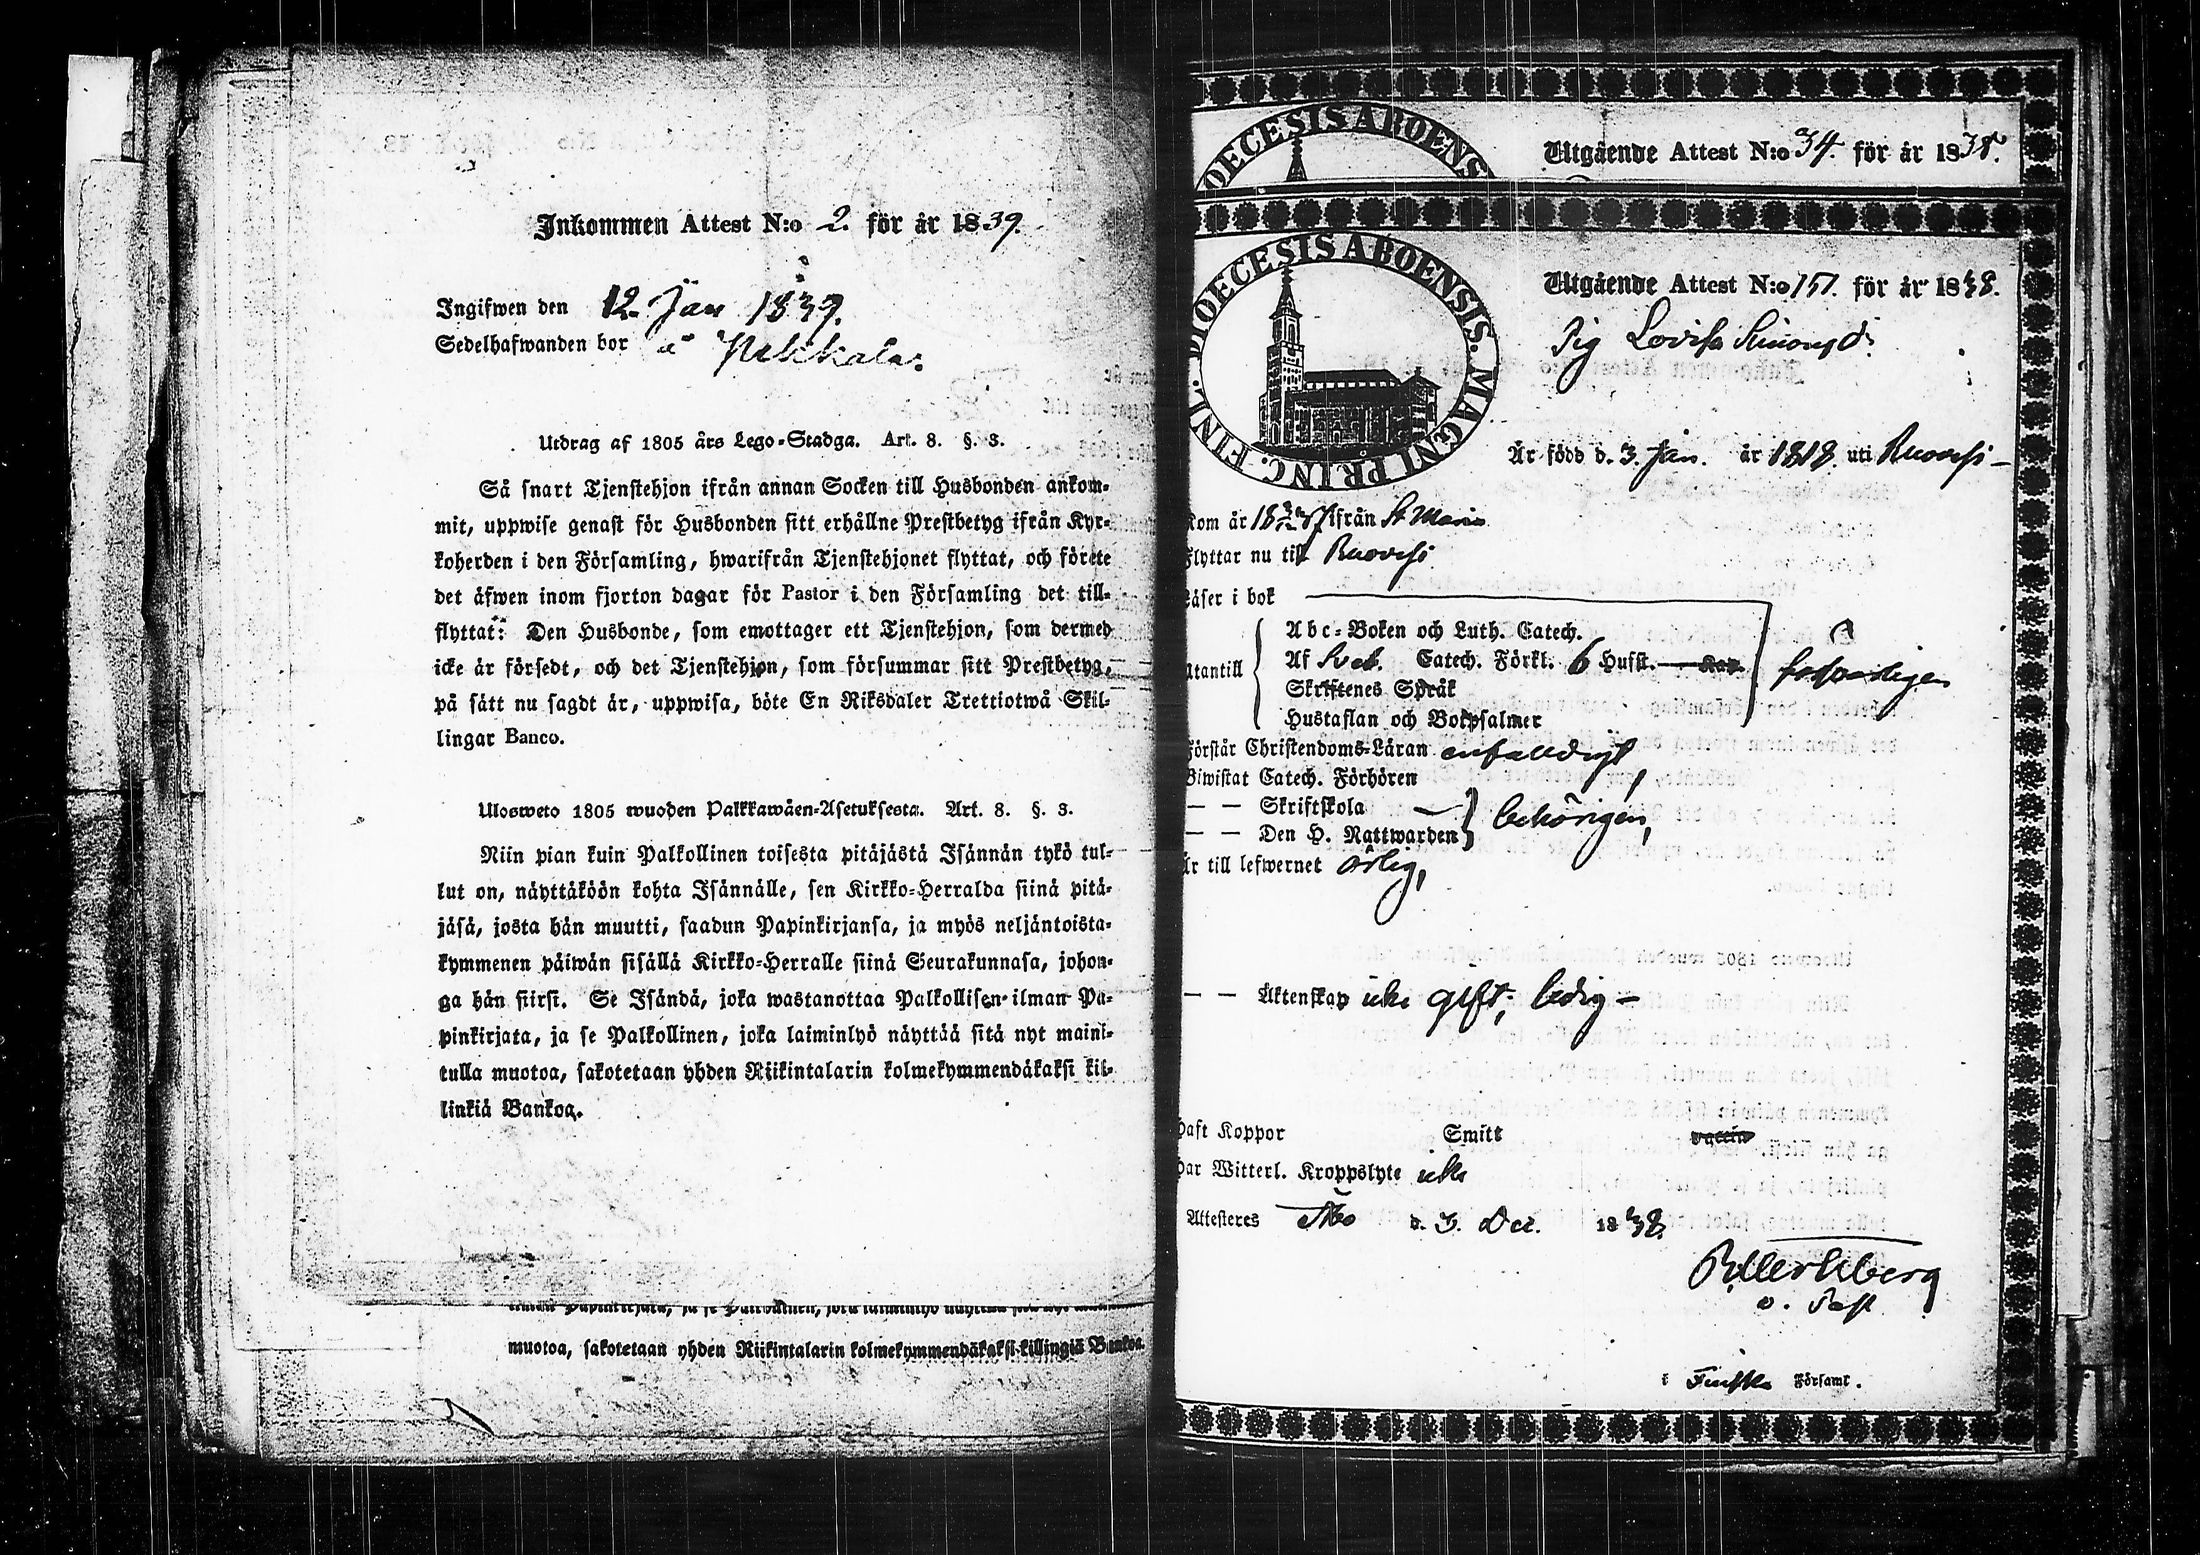 Inkommen Attest N:o 2. för år 1839.
Ingifwen den 12 Jan 1839.
Sedelhafwanden bor å Pekkala.
Utdrag af 1805 års Lego-Stadga. Art. 8. §. 3.
Så snart Tjenstehjon ifrån annan Socken till Husbonden ankom-
mit, uppwise genast för Husbonden sitt erhållne Prestbetyg ifrån Kyr-
koherden i den Församling, hwarifrån Tjenstehjonet flyttat, och förete
det äfwen inom fjorton dagar för Pastor i den Församling det till-
flyttat: Den Husbonde, som emottager ett Tjenstehjon, som dermed
icke är försedt, och det Tjenstehjon, som försummar sitt Prestbetyg,
på sätt nu sagdt är, uppwisa, böte En Riksdaler Trettiotwå Skil-
lingar Banco.
Ulosweto 1805 wuoden Palkkawäen-Asetuksesta. Art. 8. §. 3.
Niin pian kuin Palkollinen toisesta pitäjästä Isännän tykö tul-
lut on, näyttäköön kohta Isännälle, sen Kirkko-Herralda siinä pitä-
jäsä, josta hän muutti, saadun Papinkirjansa, ja myös neljäntoista-
kymmenen päiwän sisällä Kirkko-Herralle siinä Seurakunnasa, johon-
ga hän siirsi. Se Isändä, joka wastanottaa Palkollisen ilman Pa-
pinkirjata, ja se Palkollinen, joka laiminlyö näyttää sitä nyt maini-
tulla muotoa, sakotetaan yhden Riikintalarin kolmekymmendäkaksi kil-
linkiä Bankoa.
muotoa, sakotetaan yhden Riikintalarin kolmekymmendäkaksi killingiä Bankoa
DIOECESIS ABOENS
Utgående Attest N:o 34. för år 1838.
DIOECESIS ABOENSIS. MAGNI PRINC. FINL.
Utgående Attest N:o 151. för år 1838.
Pig Lovisa Simonsd.
Är född d. 3. Jan. år 1818. uti Ruovesi
Kom år 18 ifrån St Marie
Flyttar nu till Ruovesi
Läser i bok
Utantill
Abc-Boken och Luth. Catech.
Af Sveb. Catech. Förkl. 6 Hufst.
Skriftenes Språk
Hustaflan och Botpsalmer
Förstår Christendoms-Läran enfaldigt,
Biwistat Catech. Förhören
— — Skriftskola
— — Den H. Nattwarden
behörigen,
Är till lefwernet ärlig,
— — Äktenskap icke gift, ledig —
Haft Koppor Smitt vaccin
Har Witterl. Kroppslyte icke
Attesteres Åbo d. 3. Dec. 1838.
v. Past
i Finska Församl.